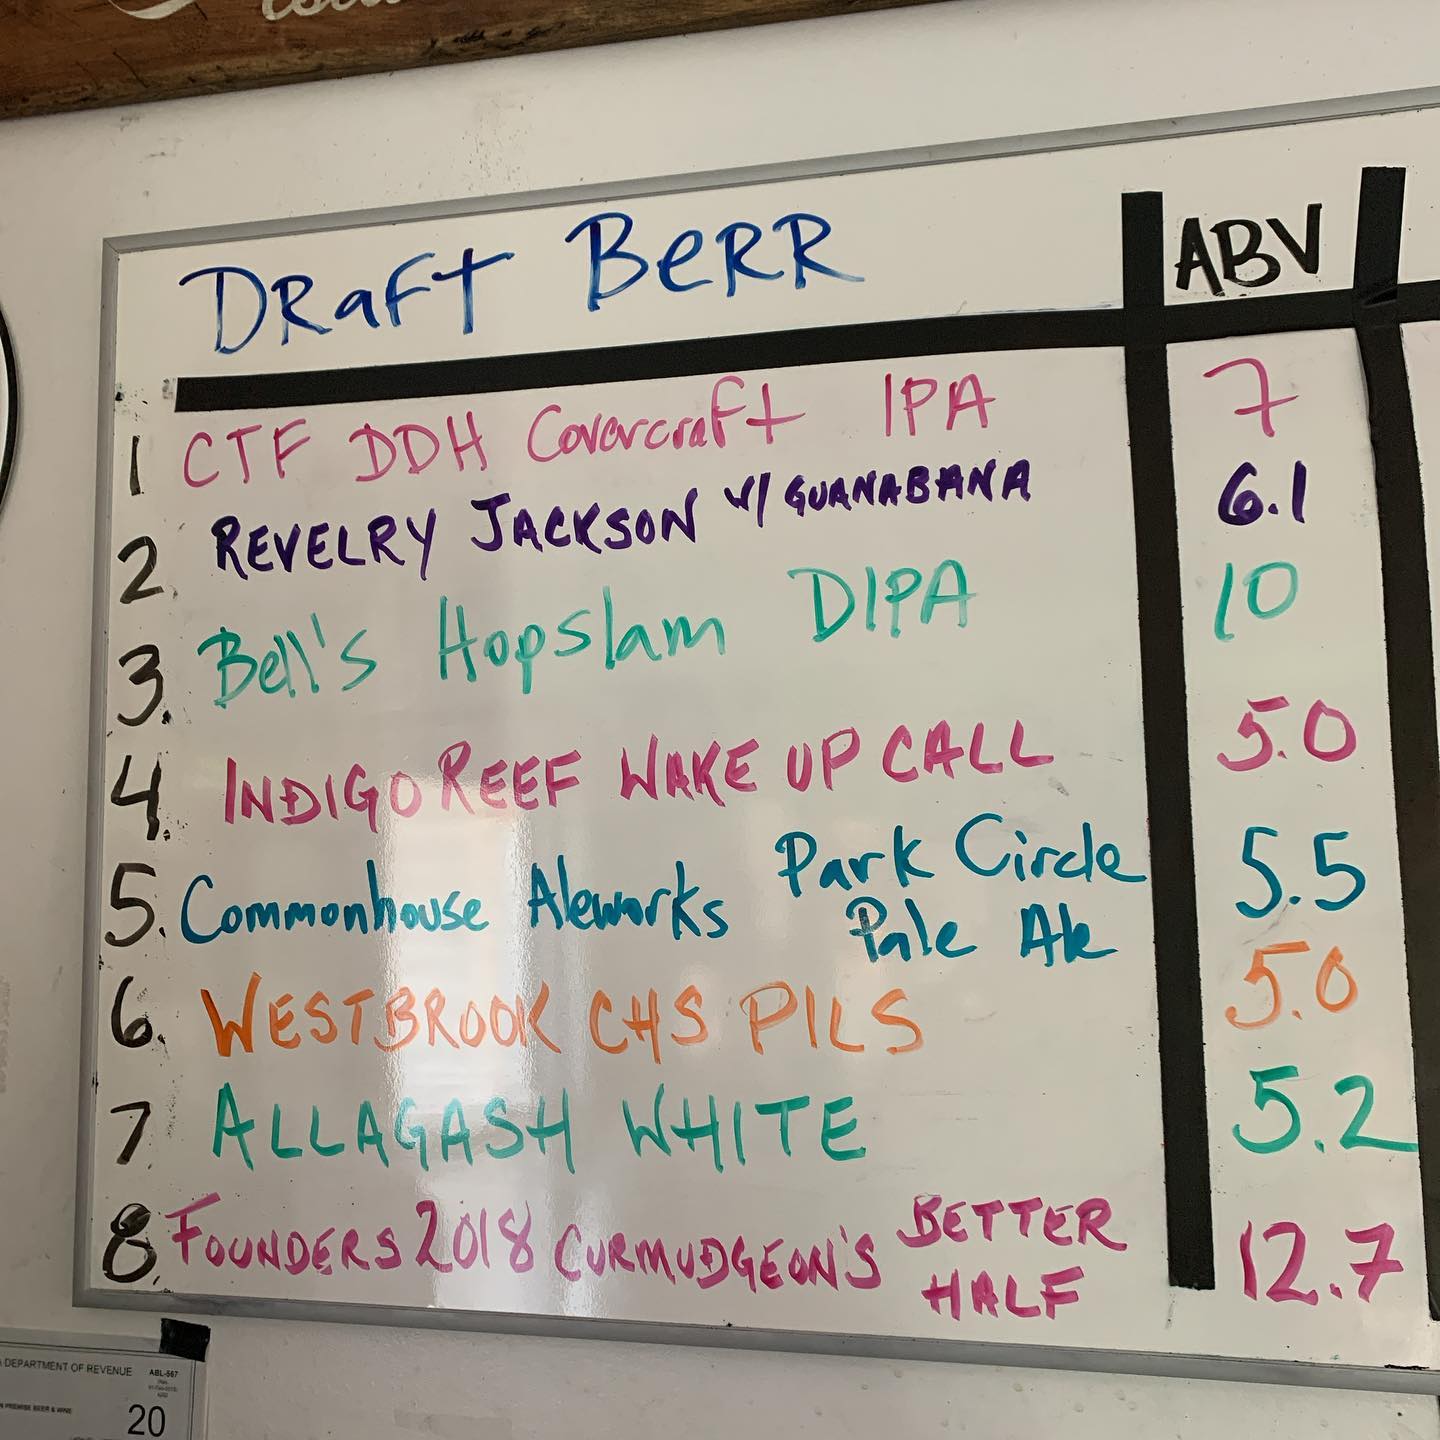 Draft Berr ABV
1 CTF DDH Covercraft IPA 7
2. REVELRY JACKSON W/ GUANABANA 6.1
3. Bell's Hopslam DIPA 10
4. INDIGO REEF WAKE UP CALL 5.0
5. Commonhouse Aleworks Park Circle 5.5
Pale Ale
6. WESTBROOK CHS PILS 5.0
7. ALLAGASH WHITE 5.2
8. FOUNDERS 2018 CURMUDGEON'S BETTER 12.7
HALF
DEPARTMENT OF REVENUE ABL-567
PREMISE BEER & WINE
20